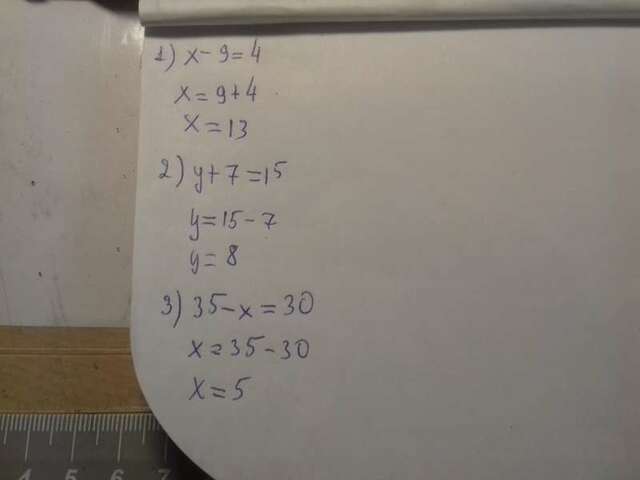 1) x - 9 = 4
x = 9 + 4
x = 13
2) y + 7 = 15
y = 15 - 7
y = 8
3) 35 - x = 30
x = 35 - 30
x = 5
4 5 6 7